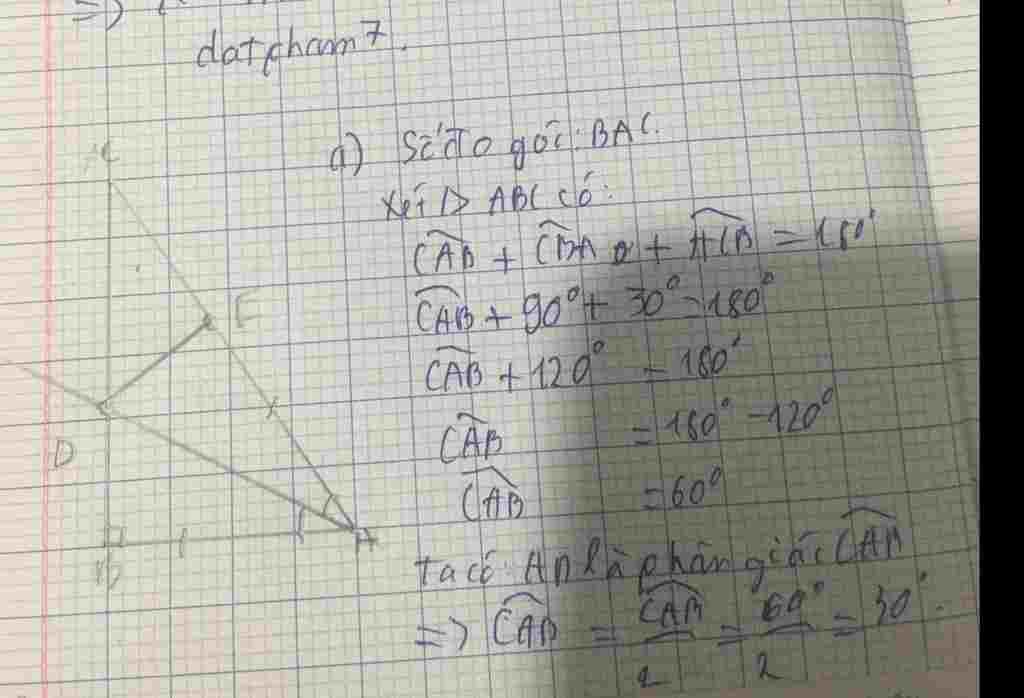 =>
datpham7.
a) Số đo góc: BAC.
Xét △ ABC có:
CAB + CBA + ACB = 180°
CAB + 90° + 30° = 180°
CAB + 120° = 180°
CAB = 180° - 120°
CAB = 60°
ta có: AD là phân giác CAB
=> CAD = CAB/2 = 60°/2 = 30°.
C
E
D
B
A